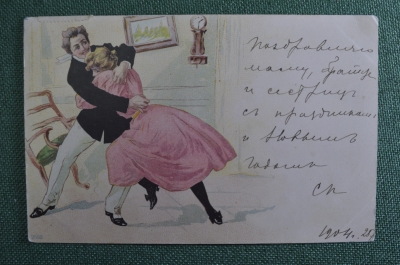 Поздравляю
маму, братц
и сестрицъ
съ праздникомъ
и Новымъ
годомъ
СК
1904. 25